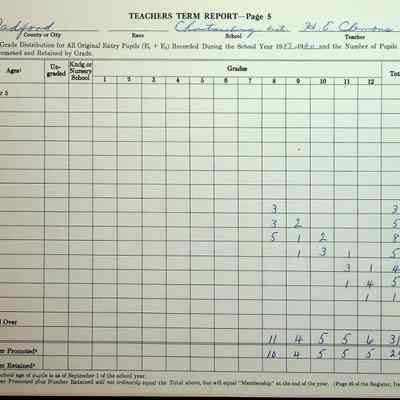 TEACHERS TERM REPORT—Page 5
Radford Christiansburg Inst. H. E. Clemons
County or City Race School Teacher
Grade Distribution for All Original Entry Pupils (E1 + E2) Recorded During the School Year 19 -19 and the Number of Pupils
romoted and Retained by Grade.
Ages1 Un-graded Kndg or Nursery School Grades Tot
1 2 3 4 5 6 7 8 9 10 11 12
r 5
3 3
3 2 5
5 1 2 8
1 3 1 5
3 1 4
1 4 5
1 1
d Over
11 4 5 5 6 31
er Promoted2 10 4 5 5 5 29
er Retained2
school age of pupils is as of September 1 of the school year.
er Promoted plus Number Retained will not ordinarily equal the Total above, but will equal "Membership" at the end of the year. (Page 40 of the Register, Ite